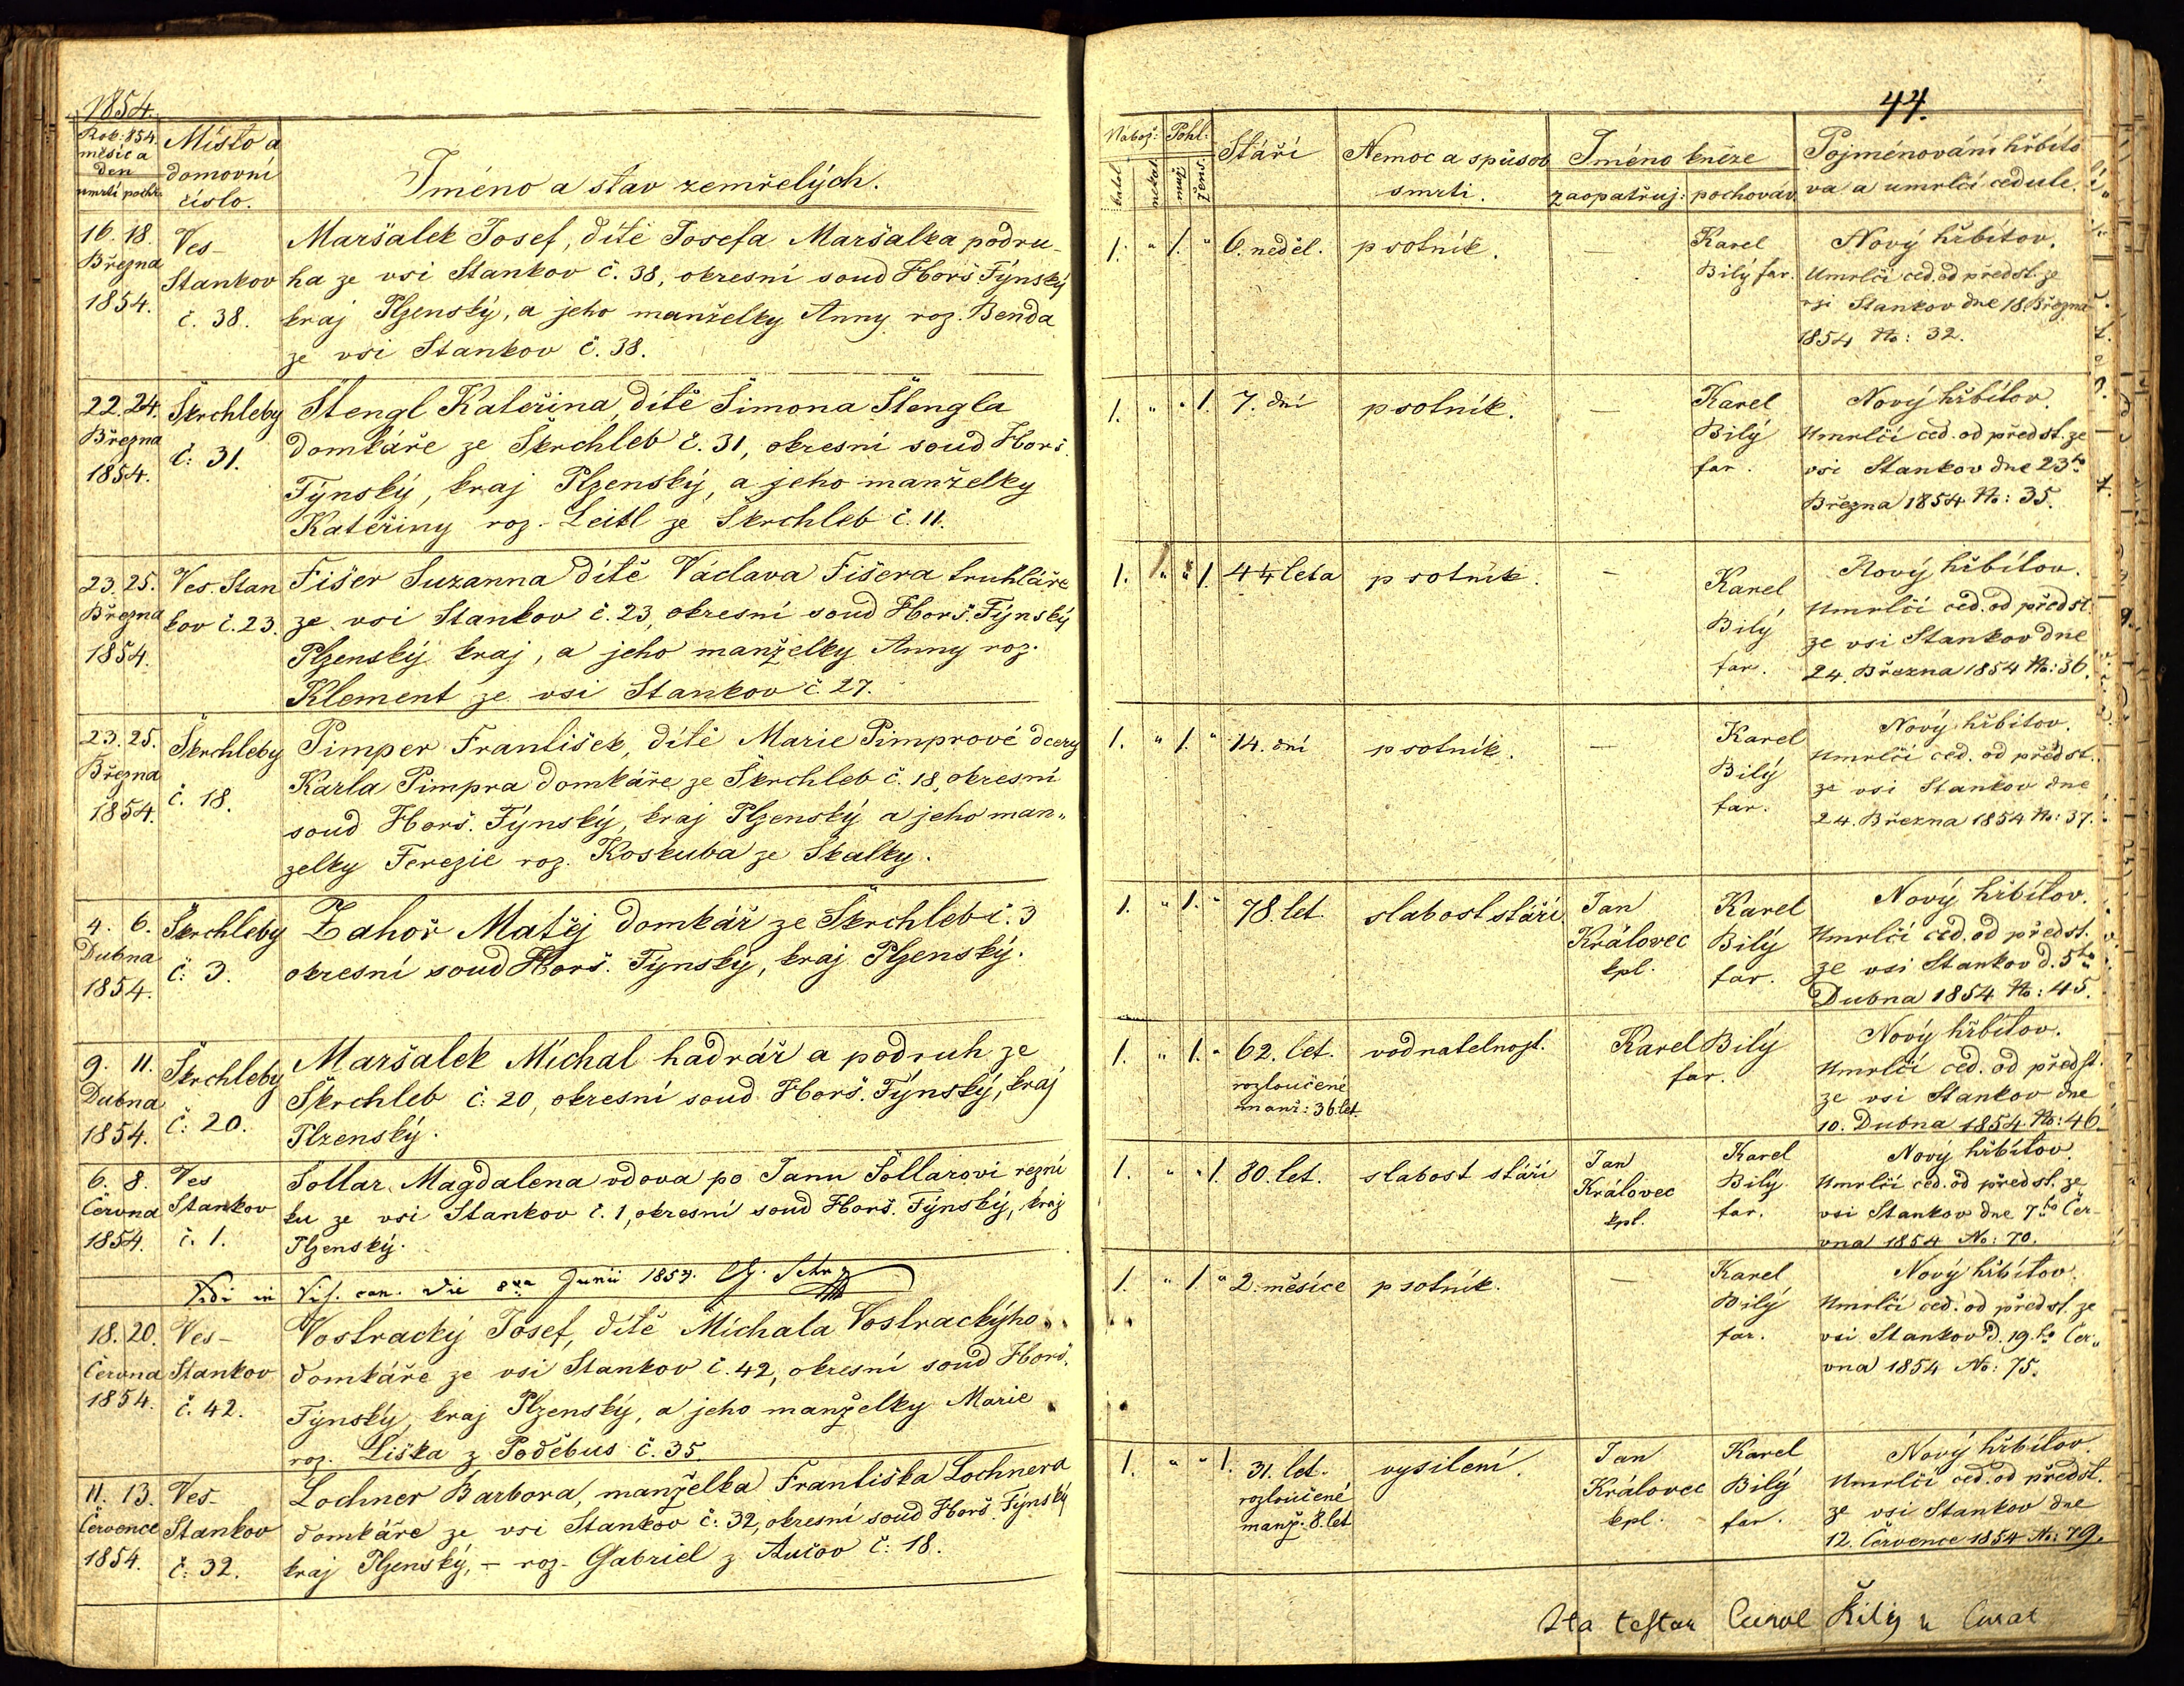 1854.
Rok: 854.
měsíc a
den
umrtí pochř.
Místo a
domovní
číslo.
Jméno a stav zemřelých.
16. 18.
Března
1854.
Ves-
Stankov
č. 38.
Maršalek Josef, dítě Josefa Maršalka podru-
ha ze vsi Stankov č. 38, okresní soud Horš. Týnský
kraj Plzenský, a jeho manželky Anny roz. Benda
ze vsi Stankov č. 38.
22. 24.
Března
1854.
Škrchleby
č: 31.
Štengl Kateřina, dítě Šimona Štengla
domkáře ze Škrchleb č. 31, okresní soud Horš.
Týnský, kraj Plzenský, a jeho manželky
Kateřiny roz. Leitl ze Škrchleb č. 11.
23. 25.
Března
1854.
Ves. Stan
kov č. 23.
Fišer Suzanna dítě Václava Fišera truhláře
ze vsi Stankov č. 23, okresní soud Horš. Týnský
Plzenský kraj, a jeho manželky Anny roz.
Klement ze vsi Stankov č. 27.
23. 25.
Března
1854.
Škrchleby
č. 18.
Pimper František, dítě Marie Pimprové dcery
Karla Pimpra domkáře ze Škrchleb č. 18, okresní
soud Horš. Týnský, kraj Plzenský a jeho man„
zelky Terezie roz. Koskuba ze Skalky.
4. 6.
Dubna
1854.
Škrchleby
č. 3.
Zahoř Matěj domkář ze Škrchleb č. 3
okresní soud Horš. Týnský, kraj Plzenský.
9. 11.
Dubna
1854.
Škrchleby
č: 20.
Maršalek Michal hadrář a podruh ze
Škrchleb č: 20, okresní soud Horš. Týnský, kraj
Plzenský.
6. 8.
Června
1854.
Ves
Stankov
č. 1.
Šollar Magdalena vdova po Janu Šollarovi rezní
ku ze vsi Stankov č. 1, okresní soud Horš. Týnský, kraj
Plzenský.
Vidi in Vis. can. die 8va Junii 1854.
18. 20.
Června
1854.
Ves-
Stankov
č. 42.
Vostracký Josef, dítě Michala Vostrackýho
domkáře ze vsi Stankov č. 42, okresní soud Horš.
Týnský, kraj Plzenský, a jeho manželky Marie
roz. Liška z Poděbus č. 35.
11. 13.
Července
1854.
Ves-
Stankov
č: 32.
Lochner Barbora, manželka Františka Lochnera
domkáře ze vsi Stankov č: 32, okresní soud Horš. Týnský
kraj Plzenský, – roz. Gabriel z Aučov č: 18.
44.
Nábož:
katol.
nekat
Pohl:
muž
žens.
Stáří
Nemoc a spůsob
smrti.
Jméno kněze
zaopatřuj: pochováv.
Pojménování hřbito
va a umrlčí cedule.
1. „ 1. „ 6. neděl. psotník. —
Karel
Bilý far.
Nový hřbitov.
Umrlčí ced. od předst. ze
vsi Stankov dne 18. Března
1854 No: 32.
1. „ „ 1. 7. dní psotník. —
Karel
Bilý
far.
Nový hřbitov.
Umrlčí ced. od předst. ze
vsi Stankov dne 23ho
Března 1854 No: 35.
1. „ „ 1. 4¼ leta psotník. —
Karel
Bilý
far.
Nový hřbitov.
Umrlčí ced. od předst.
ze vsi Stankov dne
24. Března 1854 No: 36.
1. „ 1. „ 14. dní psotník. —
Karel
Bilý
far.
Nový hřbitov.
Umrlčí ced. od předst.
ze vsi Stankov dne
24. Března 1854 No: 37.
1. „ 1. „ 78. let. slabost stáří
Jan
Královec
kpl.
Karel
Bilý
far.
Nový hřbitov.
Umrlčí ced. od předst.
ze vsi Stankov d. 5ho
Dubna 1854 No: 45.
1. „ 1. „ 62. let.
rozloučené
manž: 36 let
vodnatelnost.
Karel Bilý
far.
Nový hřbitov.
Umrlčí ced. od předst.
ze vsi Stankov dne
10. Dubna 1854. No: 46.
1. „ „ 1. 80. let. slabost stáří
Jan
Královec
kpl.
Karel
Bilý
far.
Nový hřbitov.
Umrlčí ced. od předst. ze
vsi Stankov dne 7ho Čer-
vna 1854 No: 70.
1. „ 1. „ 2. měsíce psotník. —
Karel
Bilý
far.
Nový hřbitov.
Umrlčí ced. od předst. ze
vsi Stankov d. 19.ho Čer„
vna 1854 No: 75.
1. „ „ 1. 31. let.
rozloučené
manž. 8. let
vysilení.
Jan
Královec
kpl.
Karel
Bilý
far.
Nový hřbitov.
Umrlčí ced. od předst.
ze vsi Stankov dne
12. Července 1854 No: 79.
Ita testor